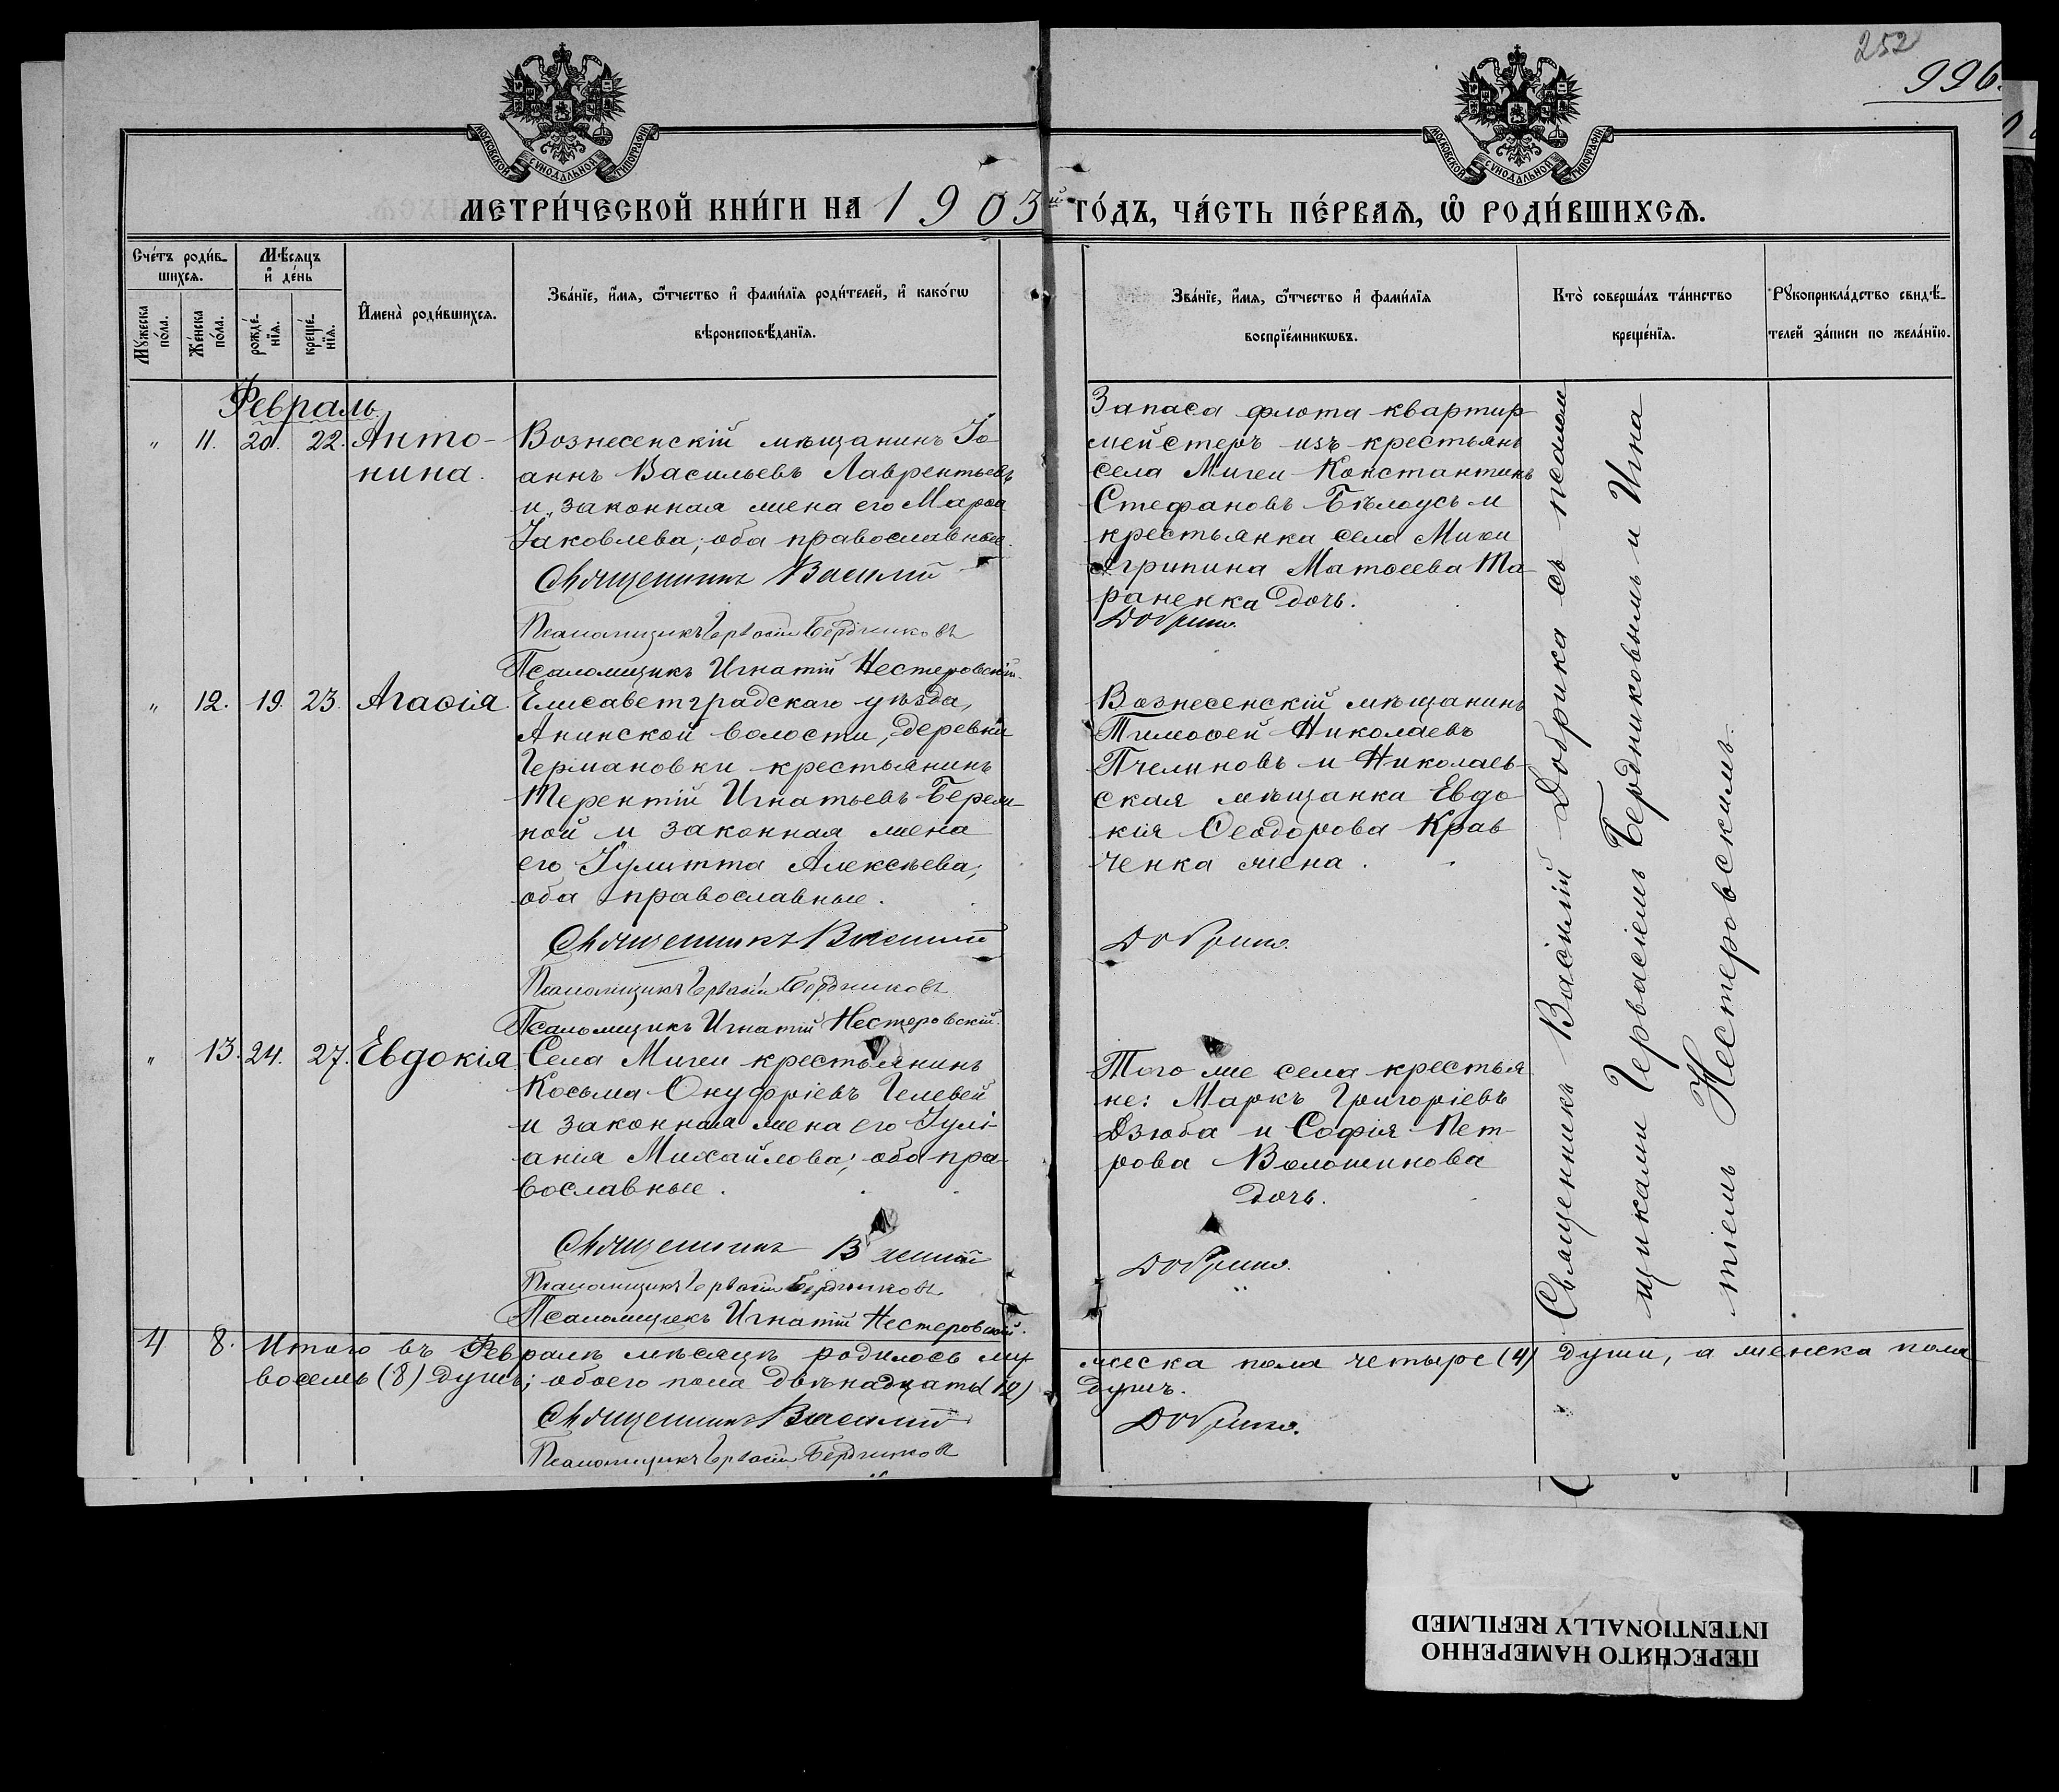 252
996
МОСКОВСКОЙ СѴНОДАЛЬНОЙ ТИПОГРАФІИ
МОСКОВСКОЙ СѴНОДАЛЬНОЙ ТИПОГРАФІИ
МЕТРИ́ЧЕСКОЙ КНИ́ГИ НА 1903й ГО́ДЪ, ЧА́СТЬ ПЕ́РВАѦ, Ѽ РОДИ́ВШИХСѦ.
Сче́тъ роди́в-
шихсѧ.
Мѣ́сѧцъ
и҆ де́нь
Мꙋ́жеска
по́ла.
Же́нска
по́ла.
рожде́-
нїѧ.
креще́-
нїѧ.
И҆мена̀ роди́вшихсѧ.
Зва́нїе, и҆́мѧ, ѻ҆́тчество и҆ фами́лїѧ роди́телей, и҆ како́гѡ
вѣроисповѣ́данїѧ.
Зва́нїе, и҆́мѧ, ѻ҆́тчество и҆ фами́лїѧ
воспрїе́мникѡвъ.
Кто̀ соверша́лъ та́инство
креще́нїѧ.
Рꙋкоприкла́дство свидѣ́-
телей за́писи по жела́нїю.
Февраль.
" 11. 20. 22. Анто-
нина.
Вознесенскій мѣщанинъ Іо-
аннъ Васильевъ Лаврентьевъ
и законная жена его Марѳа
Іаковлева; оба православные.
Священникъ Василій
Псаломщикъ Гервасій Бердниковъ
Псаломщикъ Игнатій Нестеровскій.
Запаса флота квартир-
мейстеръ изъ крестьянъ
села Мигеи Константинъ
Стефановъ Бѣлоусъ и
крестьянка села Мигеи
Агрипина Матѳеева Та-
раненка дочь.
Добрика.
" 12. 19. 23. Агаѳія
Елисаветградскаго уѣзда,
Анинской волости, деревни
Германовки крестьянинъ
Терентій Игнатьевъ
ной и законная жена
его Іулитта Алексѣева;
оба православные.
Священникъ Василій
Псаломщикъ Гервасій Бердниковъ
Псаломщикъ Игнатій Нестеровскій.
Вознесенскій мѣщанинъ
Тимоѳей Николаевъ
Пчелиновъ и Николаев-
ская мѣщанка Евдо-
кія Ѳеодорова Крав-
ченка жена.
Добрика.
" 13. 24. 27. Евдокія
Села Мигеи крестьянинъ
Косьма Онуфріевъ Гелевей
и законная жена его Іулі-
анія Михайлова; оба пра-
вославные.
Священникъ Василій
Псаломщикъ Гервасій Бердниковъ
Псаломщикъ Игнатій Нестеровскій.
Того же села крестья
не: Маркъ Григоріевъ
Дзюба и Софія Пет-
рова Волошинова
дочь.
Добрика.
Священникъ Василій Добрика съ псалом
щиками Гервасіемъ Бердниковымъ и Игна
тіемъ Нестеровскимъ.
4 8. Итого въ Февралѣ мѣсяцѣ родилось му-
жеска пола четыре (4) души, а женска пола
восемь (8) душъ; обоего пола двѣнадцать (12)
душъ.
Священникъ Василій
Добрика.
Псаломщикъ Гервасій Бердниковъ
ПЕРЕСНЯТО НАМЕРЕННО
INTENTIONALLY REFILMED